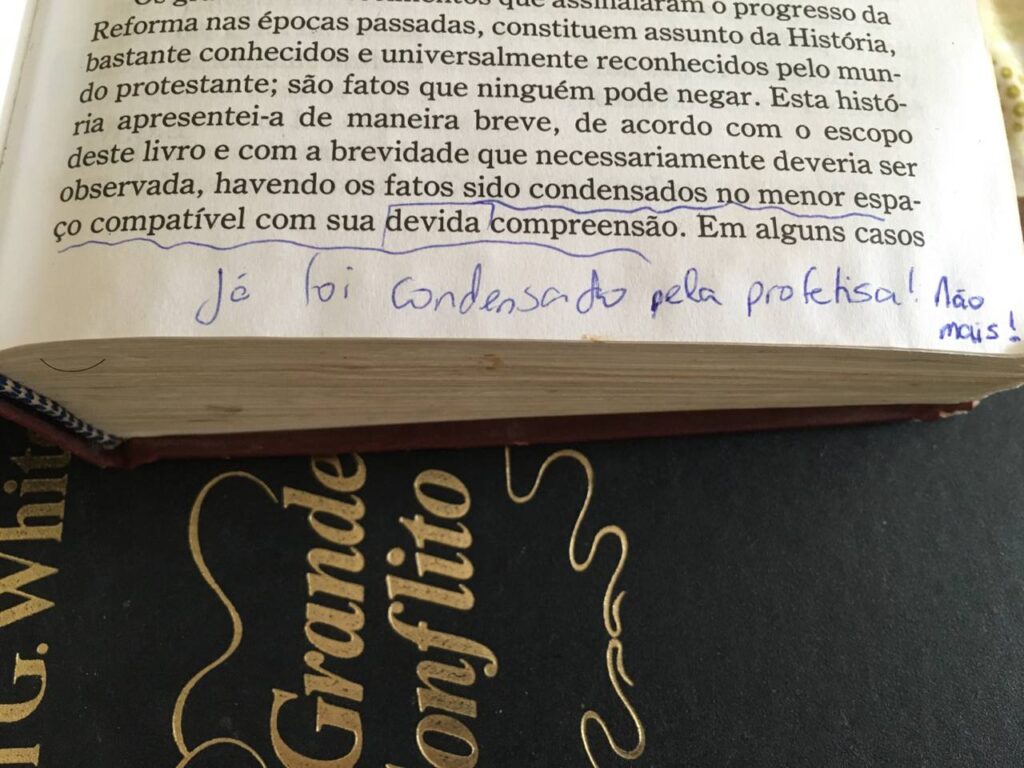 que assinalaram o progresso da
Reforma nas épocas passadas, constituem assunto da História,
bastante conhecidos e universalmente reconhecidos pelo mun-
do protestante; são fatos que ninguém pode negar. Esta histó-
ria apresentei-a de maneira breve, de acordo com o escopo
deste livro e com a brevidade que necessariamente deveria ser
observada, havendo os fatos sido condensados no menor espa-
ço compatível com sua devida compreensão. Em alguns casos
Já foi condensado pela profetisa! Não
mais!
G. White
Grande
Conflito